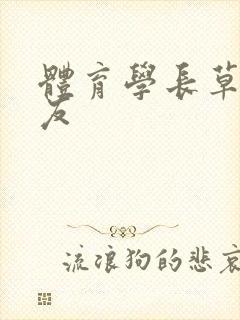 體育學長草
友
流浪狗的悲哀